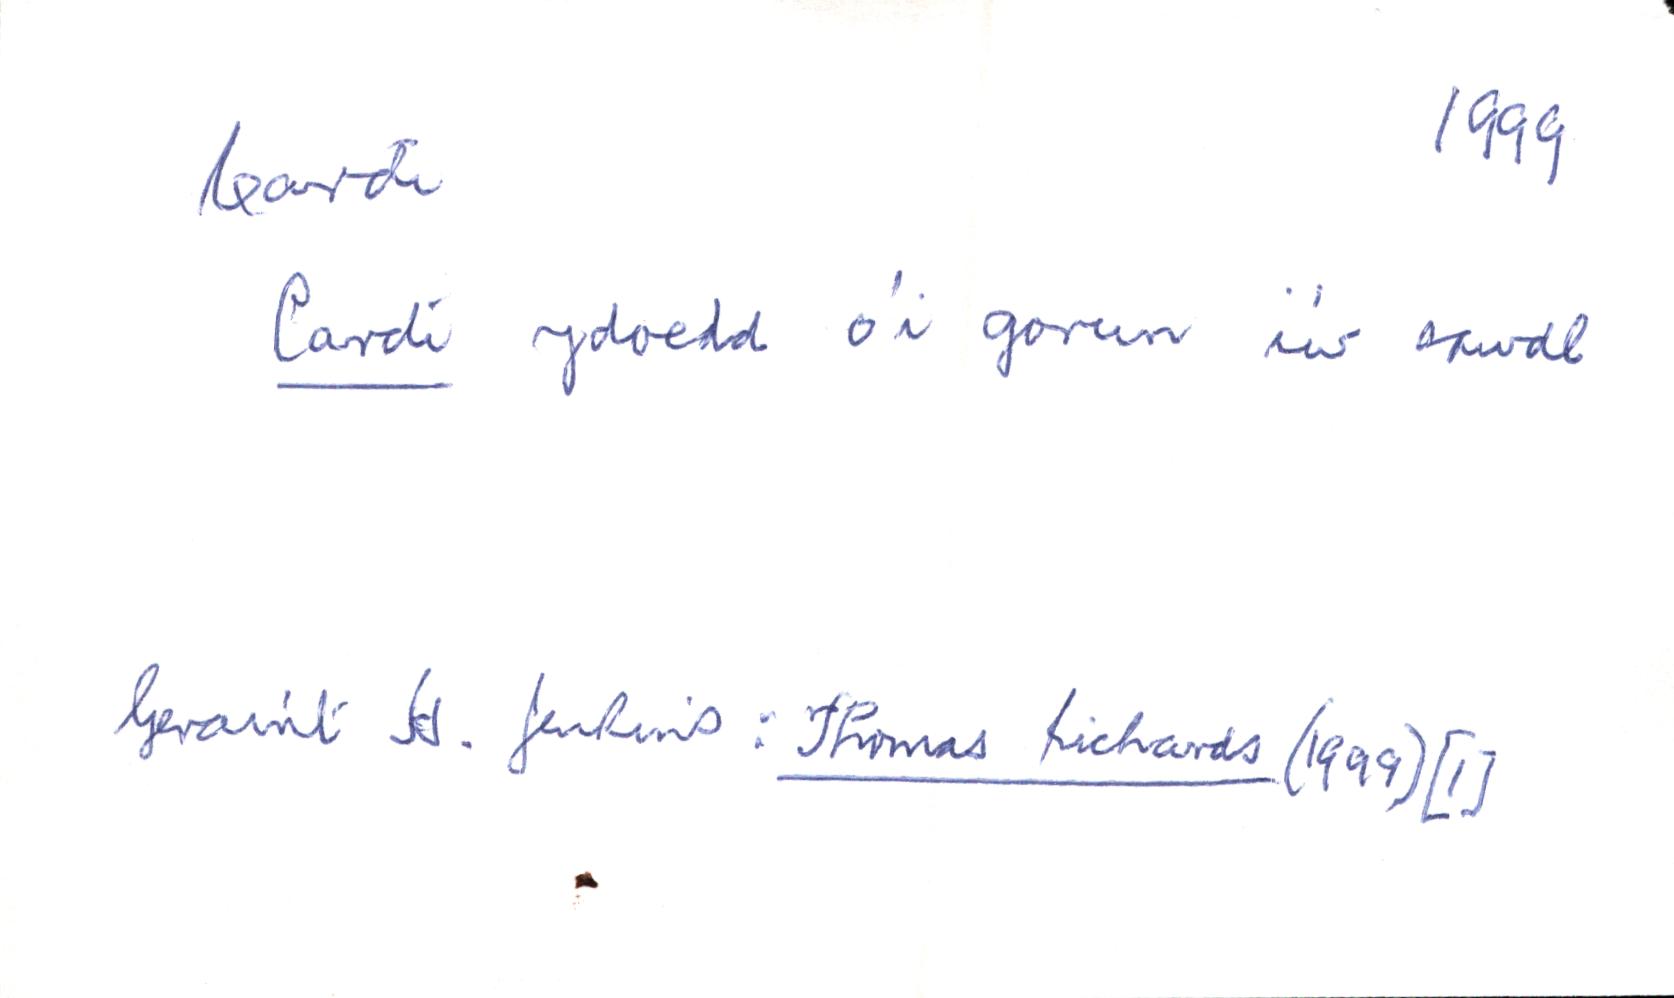 Cardi 1999
Cardi ydoedd o'i gorun i'w sawdl
Geraint H. Jenkins : Thomas Richards (1999) [1]